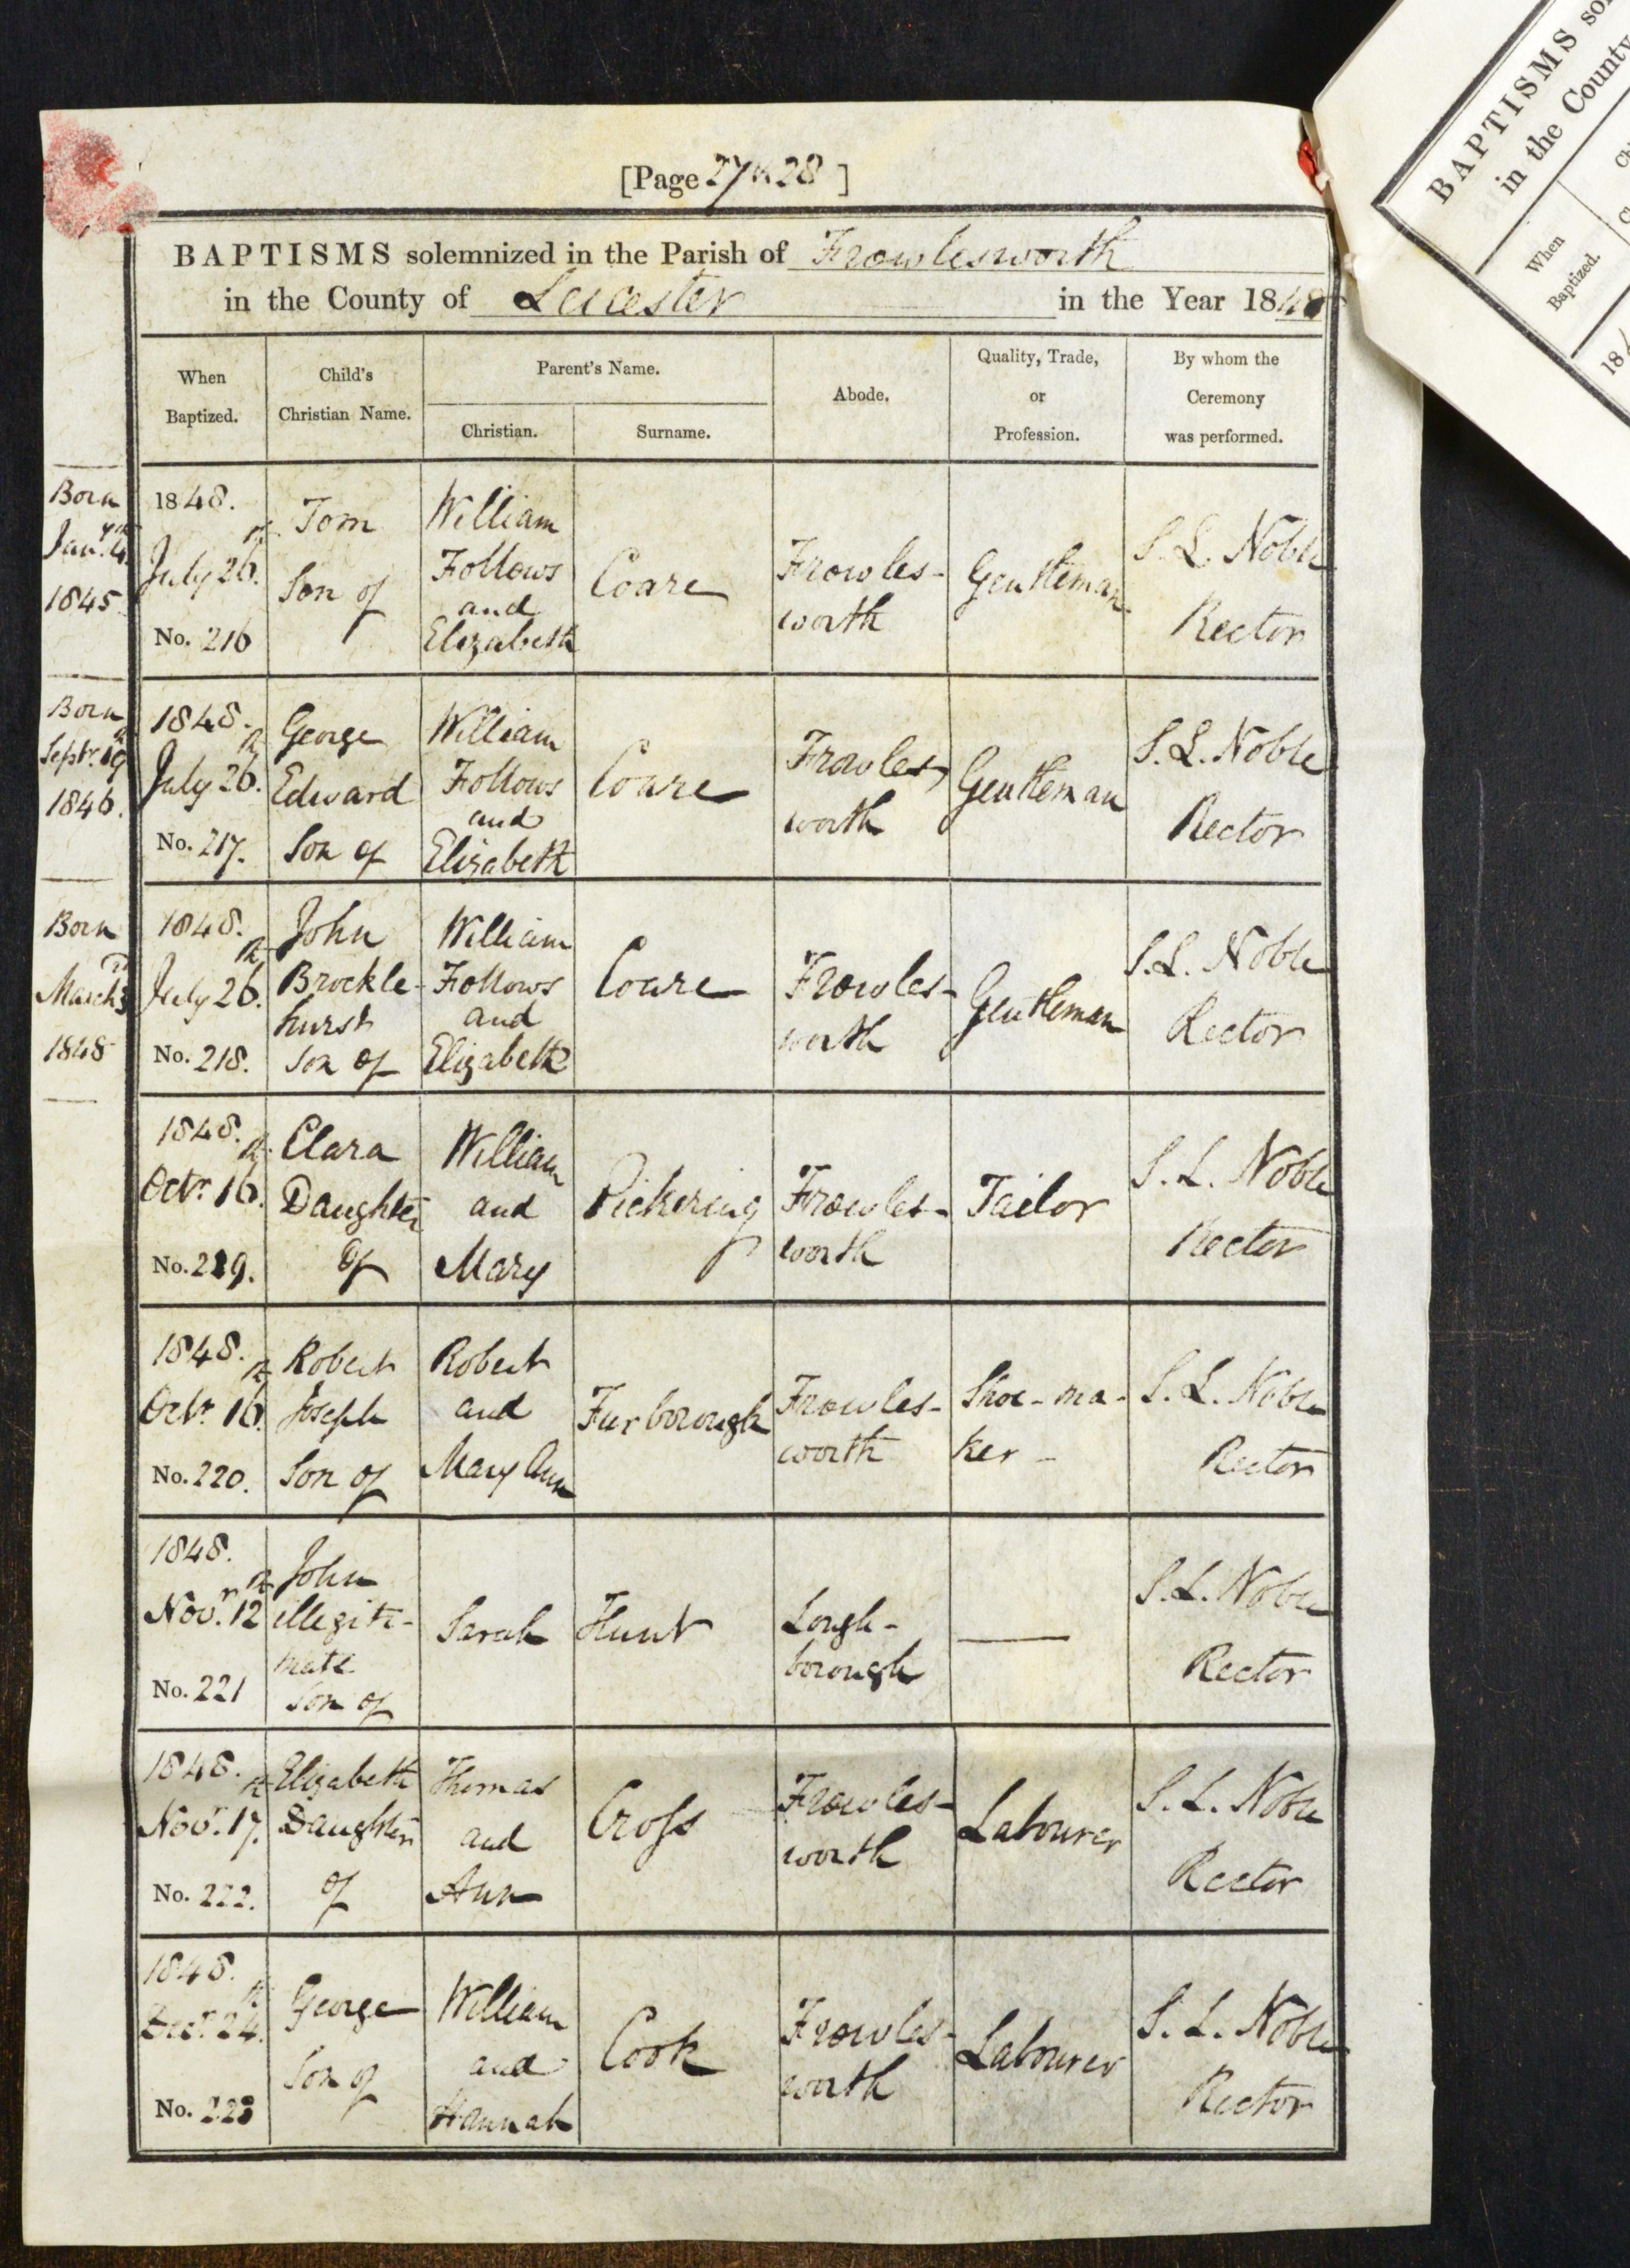 [Page 27 & 28]
BAPTISMS solemnized in the Parish of Frowlesworth
in the County of Leicester in the Year 1848
When
Baptized.
Child's
Christian Name.
Parent's Name.
Christian.
Surname.
Abode.
Quality, Trade,
or
Profession.
By whom the
Ceremony
was performed.
Born
Jany. 4th
1845
1848.
July 26th.
No. 216
Tom
Son of
William
Follows
and
Elizabeth
Coare
Frowles-
worth
Gentleman
S. L. Noble
Rector
Born
Septr. 19th
1846.
1848.
July 26th.
No. 217.
George
Edward
Son of
William
Follows
and
Elizabeth
Coare
Frowles-
worth
Gentleman
S. L. Noble
Rector
Born
March 3rd
1848
1848.
July 26th.
No. 218.
John
Brockle-
hurst
Son of
William
Follows
and
Elizabeth
Coare
Frowles-
worth
Gentleman
S. L. Noble
Rector
1848.
Octr. 16th.
No. 219.
Clara
Daughter
of
William
and
Mary
Pickering
Frowles-
worth
Tailor
S. L. Noble
Rector
1848.
Octr. 16th
No. 220.
Robert
Joseph
Son of
Robert
and
Mary Ann
Furborough
Frowles-
worth
Shoe-ma-
ker -
S. L. Noble
Rector
1848.
Novr. 12th
No. 221
John
illegiti-
mate
Son of
Sarah
Hunt
Lough-
borough
S. L. Noble
Rector
1848.
Novr. 17th.
No. 222.
Elizabeth
Daughter
of
Thomas
and
Ann
Cross
Frowles-
worth
Labourer
S. L. Noble
Rector
1848.
Decr. 24th.
No. 223
George
Son of
William
and
Hannah
Cook
Frowles-
worth
Labourer
S. L. Noble
Rector
BAPTISMS
in the County
When
Baptized.
18